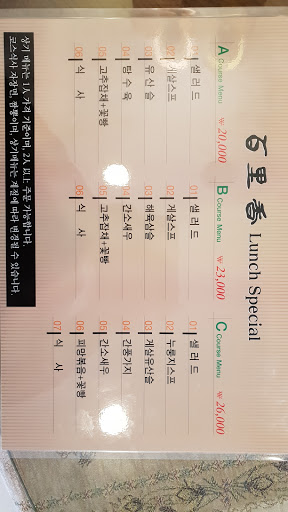 百里香 Lunch Special
A Course Menu ₩ 20,000
01 샐러드
02 게살스프
03 유산슬
04 탕수육
05 고추잡채+꽃빵
06 식 사
B Course Menu ₩ 23,000
01 샐러드
02 게살스프
03 해육삼슬
04 간소새우
05 고추잡채+꽃빵
06 식 사
C Course Menu ₩ 26,000
01 샐러드
02 누룽지스프
03 게살유산슬
04 간풍가지
05 간소새우
06 피망볶음+꽃빵
07 식 사
상기 메뉴는 1인 가격 기준이며, 2인 이상 주문 가능합니다.
코스식사 자장면, 짬뽕이며, 상기메뉴는 계절에 따라 변경될 수 있습니다.